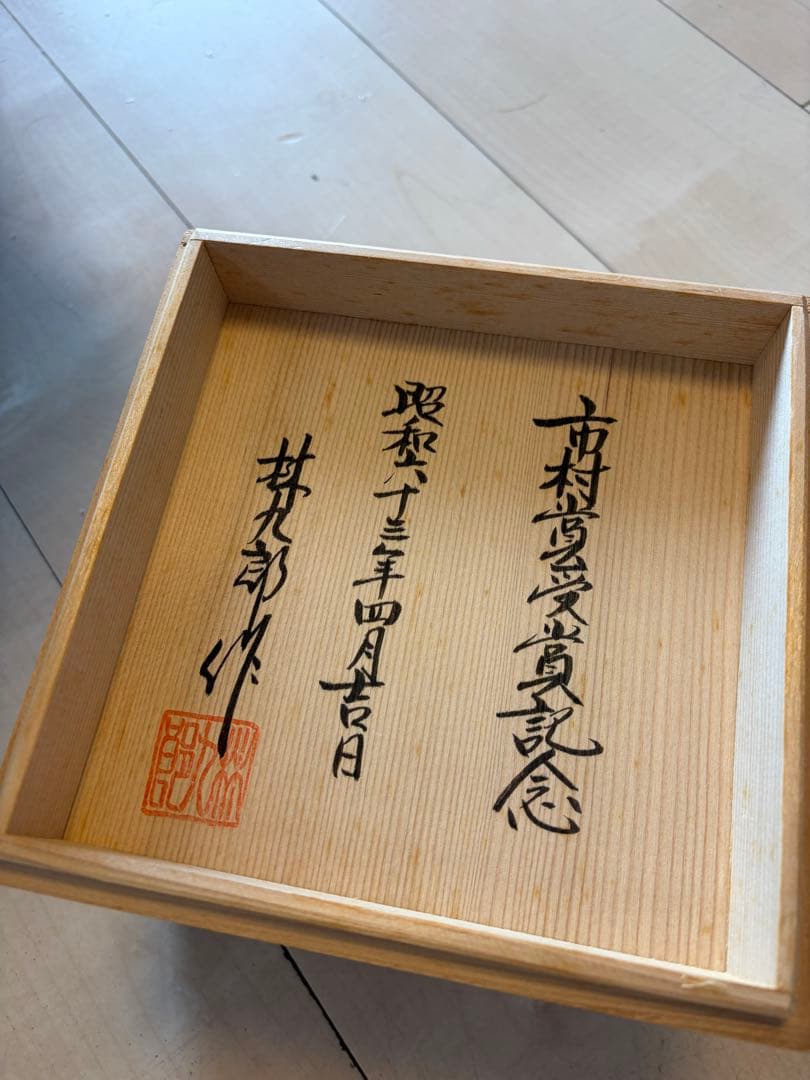 市村賞受賞記念
昭和六十三年四月吉日
林九郎作
林九郎